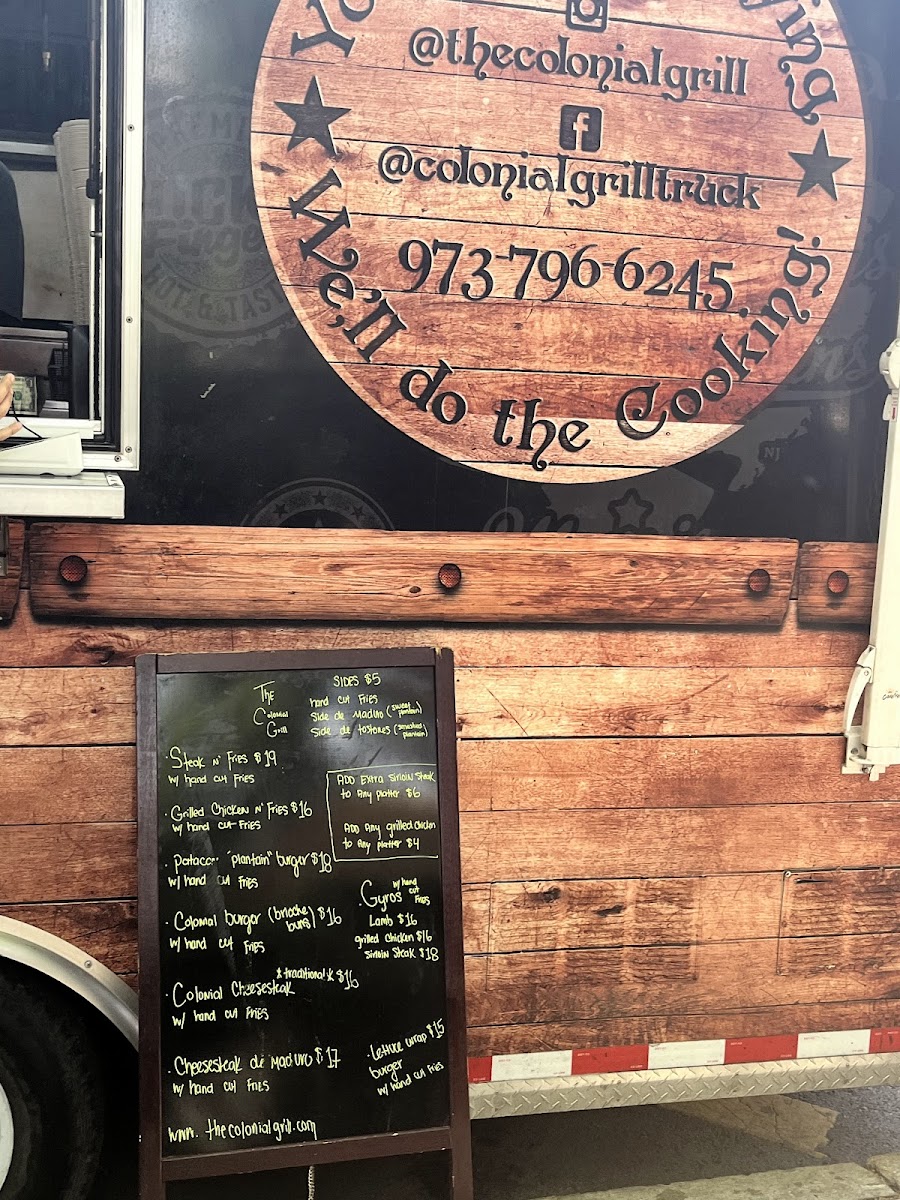 Yo
ying
@thecolonialgrill
f
@colonialgrilltruck
973-796-6245
We'll do the Cooking!
NJ
The
Colonial
Grill
SIDES $5
hand cut Fries
Side de Maduro (sweet plantain)
Side de tostones (smashed plantain)
· Steak N' Fries $19
w/ hand cut Fries
ADD Extra Sirloin Steak
to Any platter $6
ADD Any grilled chicken
to Any platter $4
· Grilled Chicken N' Fries $16
w/ hand cut Fries
· Patacon "plantain" burger $18
w/ hand cut Fries
· Gyros w/ hand cut Fries
Lamb $16
grilled chicken $16
Sirloin Steak $18
· Colonial burger (brioche buns) $16
w/ hand cut Fries
· Colonial Cheesesteak *traditional* $16
w/ hand cut Fries
· Cheesesteak de Maduro $17
w/ hand cut Fries
· Lettuce wrap $15
burger
w/ hand cut Fries
www.thecolonialgrill.com